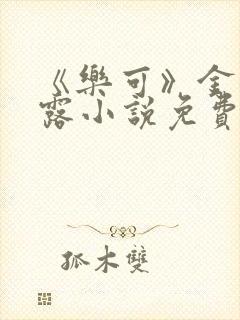 《樂可》金
露小說免費
孤木雙